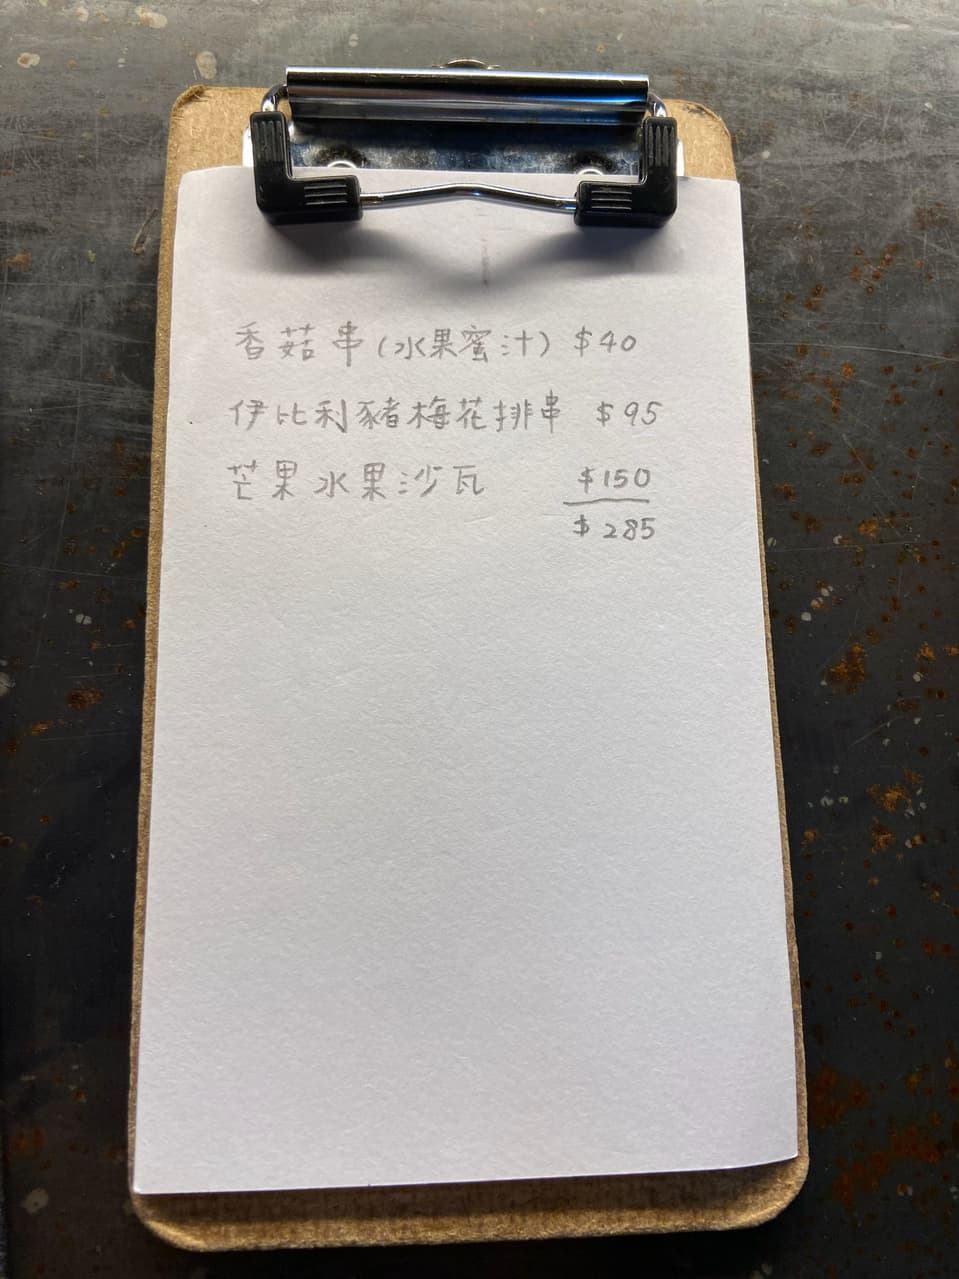 香菇串(水果蜜汁) $40
伊比利豬梅花排串 $95
芒果水果沙瓦 $150
$285